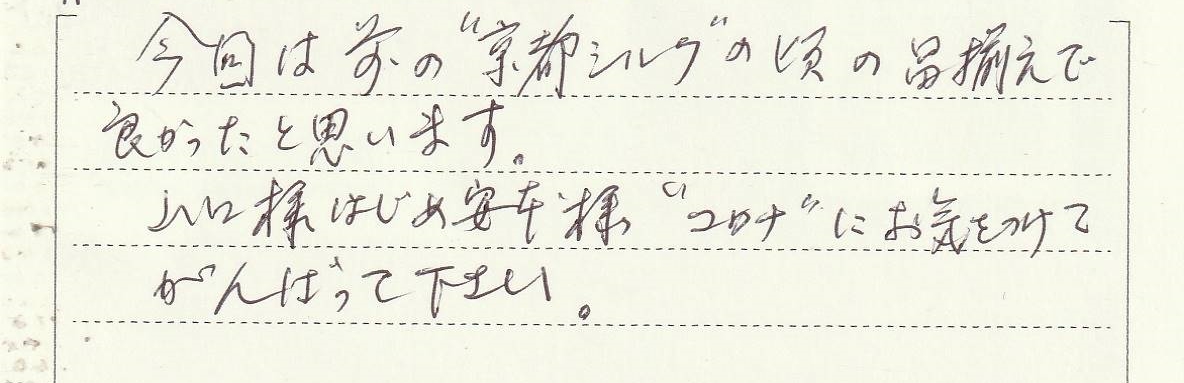 今回は前の"京都シルク"の頃の品揃えで
良かったと思います。
川口様はじめ安本様"コロナ"にお気をつけて
がんばって下さい。